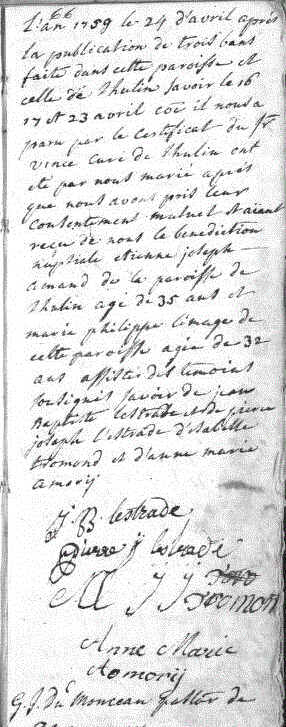 66
L'an 1759 le 24 d'avril après
la publication de trois bans
faite dans cette paroisse et
celle de thulin savoir le 16
17 et 23 avril coe il nous a
paru par le certificat du Sr
vince curé de thulin ont
eté par nous marié après
que nous avons pris leur
consentement mutuel et aiant
reçu de nous le benediction
nuptiale etienne joseph
amand de la paroisse de
thulin agé de 35 ans et
marie philippe limage de
cette paroisse agée de 32
ans assistés des temoins
soesignés savoir de jean
Baptiste lestrade et de pierre
joseph l'estrade d'isabelle
tromond et d'anne marie
amorij
J B lestrade
pierre j lestrade
M J J tromon
Anne Marie
Aomorij
G. J. du Monceau pastor de